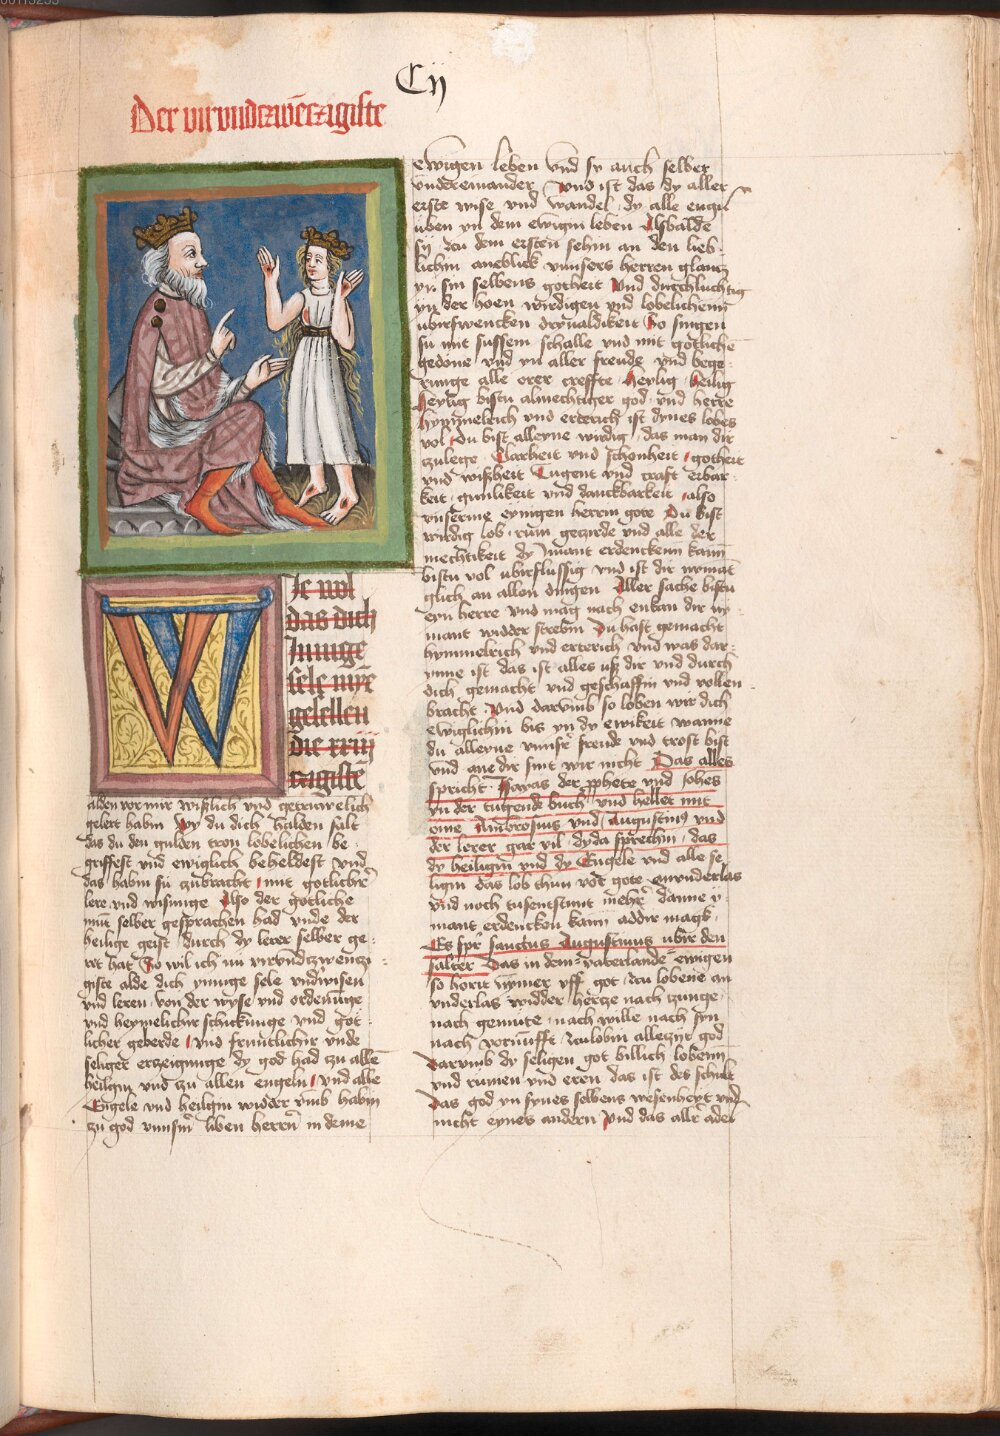 Cij
Der virundczwenczigiste
Je wol
das dich
Jnnige
sele myne
gesellen
die xxiij
czigisten
alden vor mir wißlich und getruwelich
gelert habin Wy du dich halden salt
das du den gulden tron lobelichen be
griffest und ewiglich beheldest Und
das habin sii zubracht mit gotlicher
lere und wisunge Also der gotliche
munt selber gesprachen had unde der
heilige geist durch dy lerer selber ge
ret hat So wil ich nu virundczwenczi
giste alde dich ynnige sele undwisen
und leren von der wyse und ordenunge
und heymelicher schickunge und got
licher geberde und fruntlicher unde
seliger erczeigunge dy god had zu allen
heilgin und zu allen engeln und alle
Engele und heilgin widder umb habin
zu god unnserm liben herrn in deme
ewigen leben Und sy auch selber
undereinander Und ist das dy aller
erste wise und wandel dy alle engil
uben yn dem ewigin leben Alsbalde
sy zcu dem ersten sehin an den lieb
lichin aneblick unnsers herren glancz
yn sin selbens gotheit Und durchluchtig
yn der hoen wirdigen und lobelichenn
ubirswencken dryvaldikeit So singen
sii mit sussem schalle und mit gotliche
gedone und yn aller freude und bege
runge alle orer creffte Heylig heilig
heylig bistu almechtiger god und herre
hymmelrich und ertrich ist dynes lobes
vol du bist alleyne wirdig das man dir
zulege Clarheit und schonheit gotheit
und wißheit Tugent und craft erbar
keit gunlikeit und danckbarkeit also
unserme eynigen herrin gote Du bist
wirdig lob rum geczirde und alle der
mechtikeit dy ymant erdenckenn kann
bistu vol ubirflussig und ist dir nymat
glich an allen dingen Aller sache bistu
eyn herre und mag nach enkan dir ny
mant widder strebin Du hast gemacht
hymmelrich und erterich und was dar
ynne ist das ist alles uß dir und durch
dich gemacht und geschaffin und vollen
bracht Und darumb so loben wir dich
ewiglichin bis yn dy ewikeit wanne
du alleyne unnser freude und trost bist
und ane dir sint wir nicht Das alles
spricht Ysayas der prophete und Johes
yn der tugende buch und hellet mit
eine Ambrosius und Augustinus und
der lerer gar vil dy da sprechin das
dy heiligin und dy Engele und alle se
ligin das lob thun vor gote anunderlas
und noch tusentstunt mehr danne y
mant erdencken kann addir magk
Es spr sanctus Augustinus ubir den
salter Das in dem vaterlande ewigen
so horit nymer uff got zcu lobene an
underlas widder hertze nach zunge
nach gemute nach wille nach syn
nach vornufft zculobin alleczyt god
Darumb dy seligen got billich lobenn
und rumen und eren das ist des schult
Das god yn synes selbens wesenheyt und
nicht eynes andern Und das allir adel